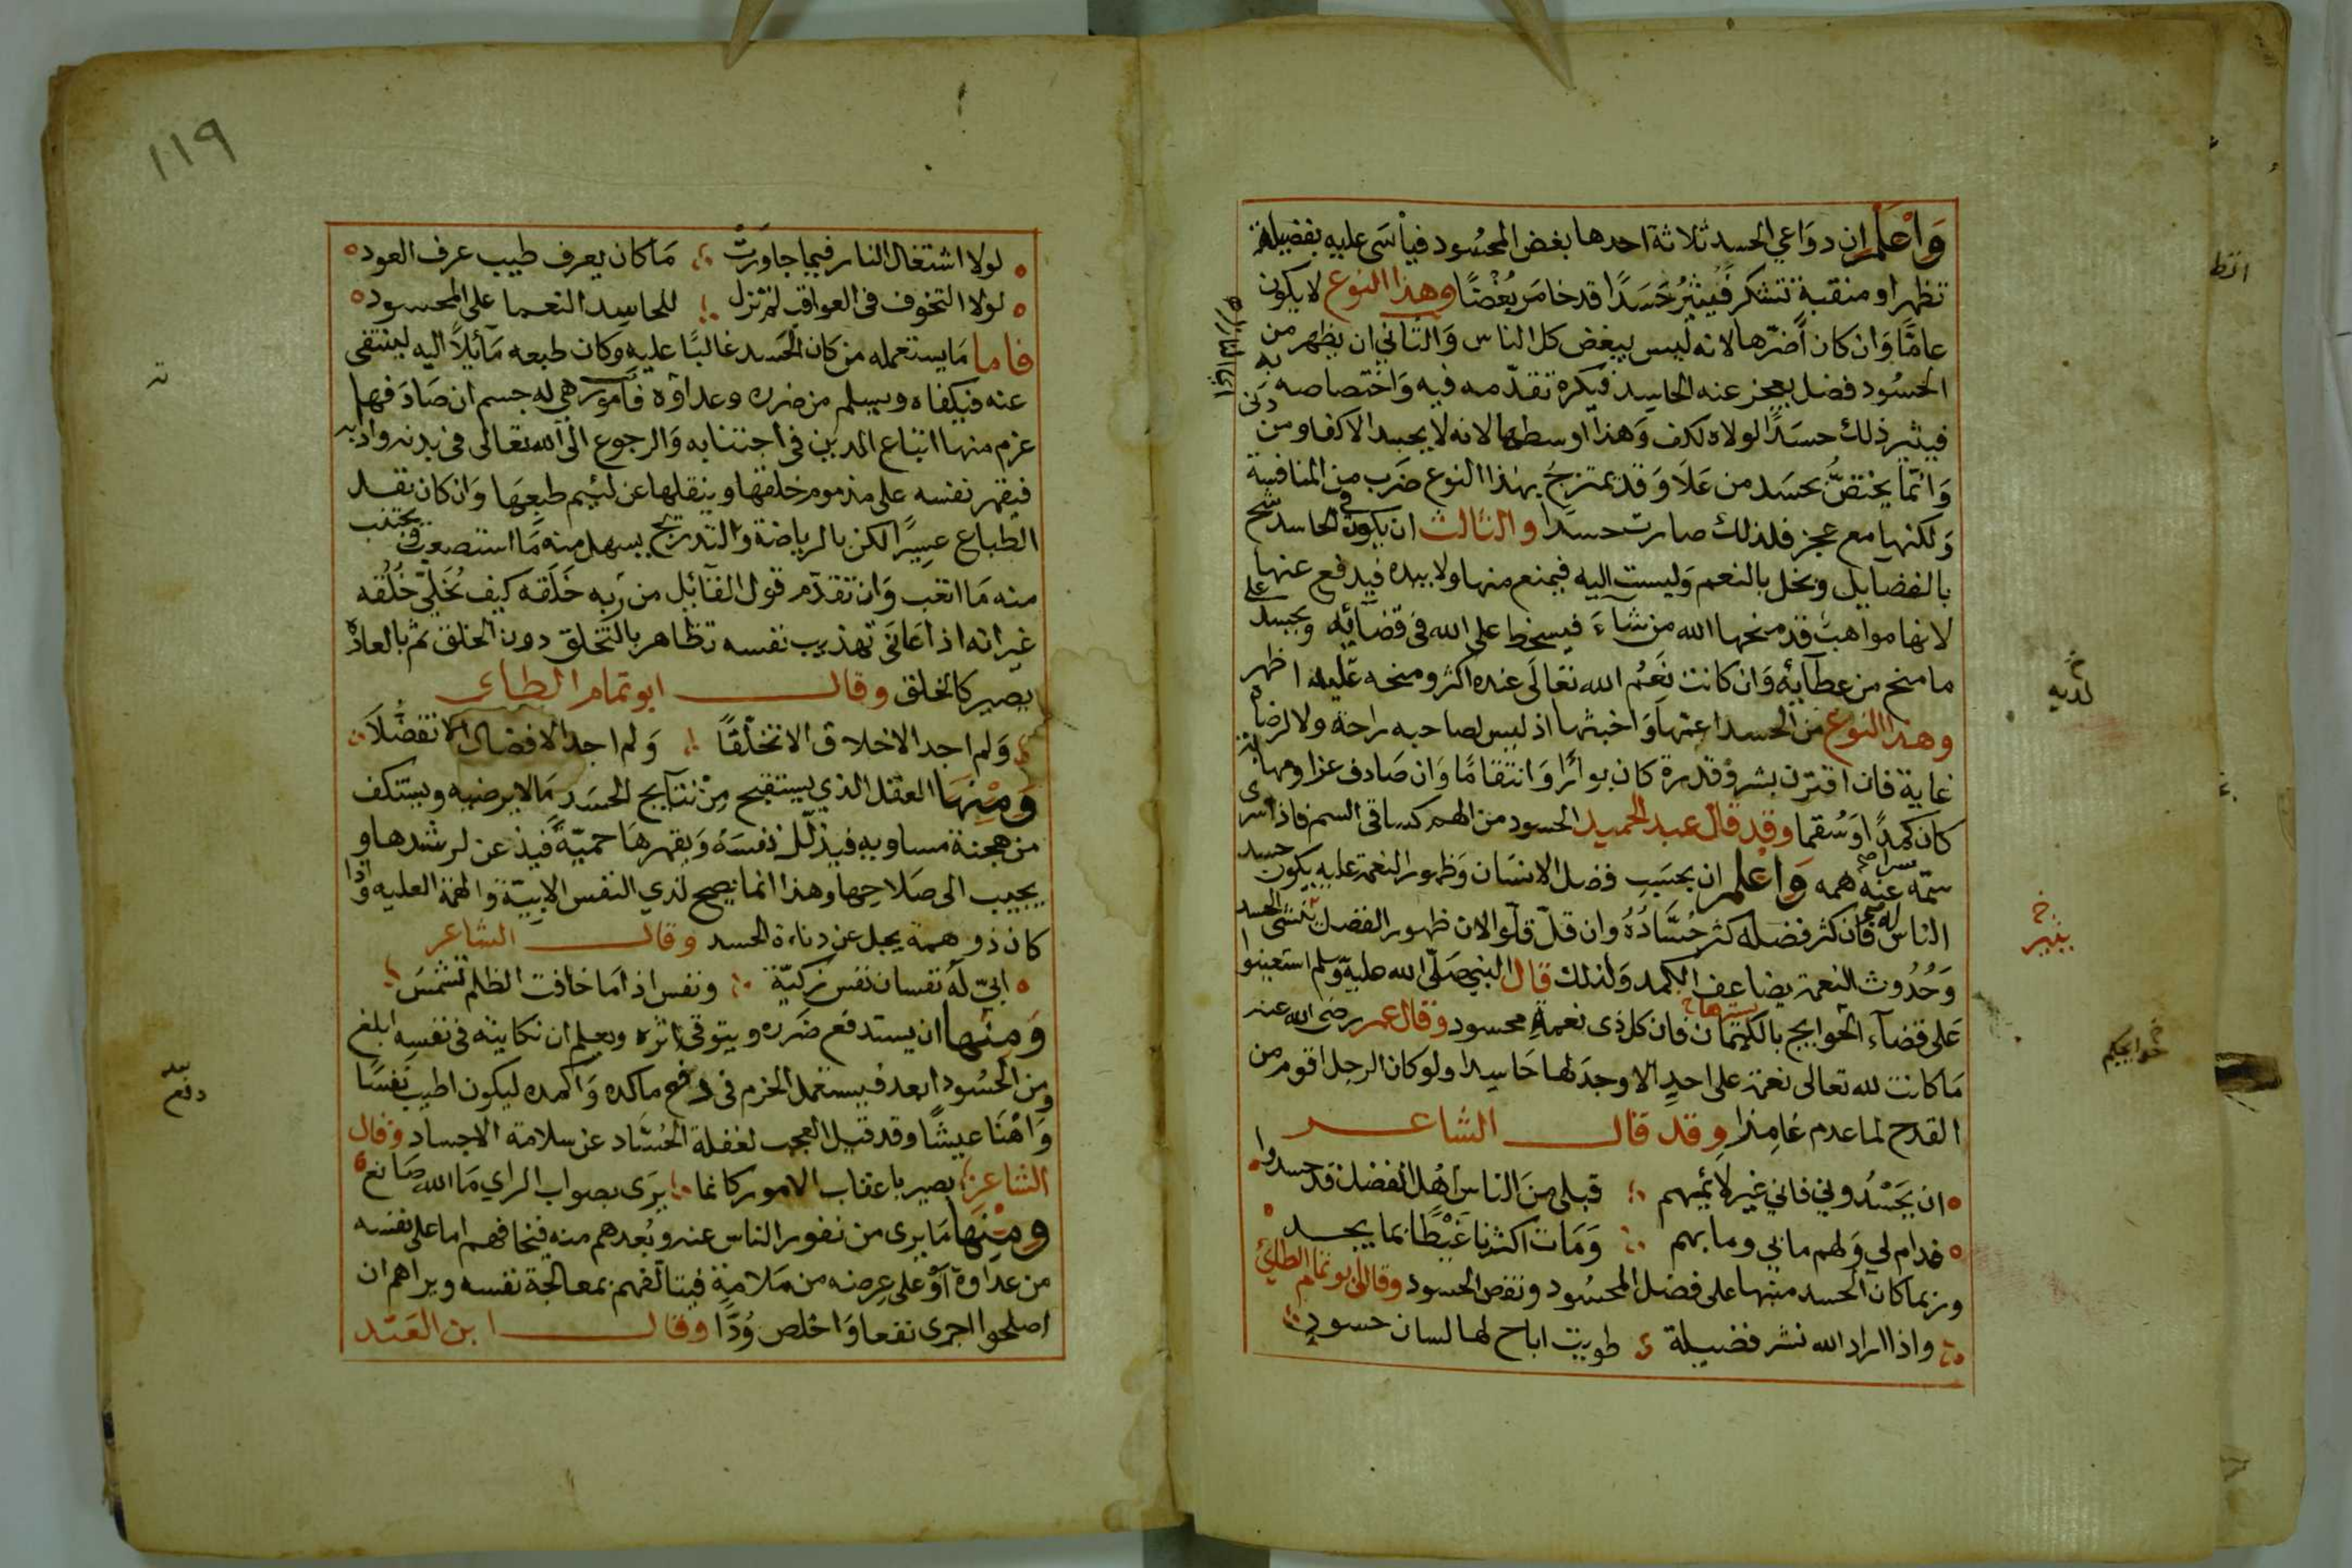 وَاعْلَم ان دوَاعي الحسد ثلاثة احدها بغض المحسُود فيأسَى عليه بفضيلة
تظهر او منقبة تشكر فَيُثيرُ حَسَدًا قد خامَر بُغْضًا وهذا النوع لا يكون
عامًّا وَان كان أضرّها لانه ليس يبغض كل الناس وَالثاني ان يظهر من
الحسُود فضل يعجز عنه الحاسد فيكره تقدّمه فيه وَاختصاصه به
فيثير ذلك حسَدًا لولاه لكف وَهذا اوسطها لانه لا يحسد الاكفا ومن دنى
وَانّما يختصُّ بحسَد من عَلَا وَقد يمتزجُ بهذا النوع ضَرب من المنافسة
وَلكنها مع عجز فلذلك صارت حسدًا والثالث ان يكون في الحاسد شح
بالفضايل وبخل بالنعم وَليست اليه فيمنع منها ولا بيده فيدفع عنها
لانها مواهبُ قد منحها الله من شاءَ فيسخط على الله في قضَآئه ويحسد على
ما منح من عطآيه وَان كانت نِعَمُ الله تعالَى عنده اكثر ومنحه عليه اظهر
وهذا النوع من الحسد اعمها وَاخبثها اذ ليس لصاحبه راحة ولا لرضاه
غاية فان اقترن بشر وَقدرة كان بوارًا وَانتقامًا وَان صَادف عجزا ومهانة
كان كمدًا وَسُقما وقد قال عبد الحميد الحسود من الهم كساقي السم فاذا سرى
سمّه سرا عنه همه وَاعْلم ان بحسَبِ فضل الانسَان وَظهور النعمة عليه يكون حسد
الناس له فان كثر فضله كثر حُسَّادُهُ وان قلّ قلّوا لان ظهور الفضل الحسد
وَحُدُوث النعمة يضاعف الكمد وَلذلك قال النبي صَلّى الله عليه وَسلم استعينوا
عَلى قضآء الحوايج بالكتمان فان كل ذى نعمة محسود وقال عمر رضى الله عنه
مَا كانت لله تعالى نعمة على احدٍ الا وجدَ لها حَاسدا ولو كان الرجل اقوم من
القدح لما عدم غامِزا وقد قال الشاعر
ان يَحْسُدُوني فاني غير لائمهم قبلى مِنَ الناس اهل الفضل قد حسدوا
فدام لي وَلهم ما بي وما بهم وَمَات اكثرنا غَيْظًا بما يجد
وربما كان الحسد منبها على فضل المحسُود ونقص الحسود وقال ابو تمام الطائي
واذا اراد الله نشر فضيلة طويت اباح لها لسان حسودٍ
لديه
يثير
حوايجكم
١١٩
لولا اشتغال النار فيما جاوَرَتْ مَا كان يعرف طيب عرف العود
لولا التخوف في العواقب لم تزل للحاسد النعما على المحسود
فاما مَا يستعمله من كان الحَسَد غالبًا عليه وَكان طبعه مَآئلًا اليه لينتفى
عنه فيكفاه ويسلم من ضرره وعداوَه فَأمور هي له حسم ان صَادَفها
عزم منها اتباع الدين في اجتنابه وَالرجوع الى الله تعالى في ادابه
فيقهر نفسه على مذموم خلقها وينقلها عن لئيم طبعِهَا وَان كان نقل
الطباع عسِيرًا لكن بالرياضة وَالتدريج يسهل منه مَا استصعب ويحبب
منه مَا اتعب وَان تقدّم قول القآئل من رَبه خَلَقه كيف يُخَلِّي خُلُقه
غير انه اذا عَانَى تهذيب نفسه تظاهر بالتَخلّق دون الخلق ثم بالعادَه
يصير كالخلق وقال ابو تمام الطاى
وَلم اجد الاخلاق الا تخلّقًا وَلم اجد الافضال الا تفضُّلَا
وَمِنْهَا العقل الذي يستقبح مِنْ نتآيج الحسَد مَا لا يرضيه ويستنكف
من هجنة مساويه فيذلّل نفسَهُ وَيقهرهَا حميّةً فيذعن لرشدها و
يجيب الى صَلاحِها وهذا انما يصح لذي النفس الابيّة وَالهمة العليه وَاذا
كان ذو همة يجل عن دناءة الحسد وقال الشاعر
ابيّ لَه نفسان نفس زكيّة ونفس اذا مَا خافت الظلم تشمَسُ
وَمنها ان يستدفع ضَرره ويتوقى اثره ويعلم ان نكايته في نفسه ابلغ
ومن الحسُود ابعد فيستعمل الحزم في دفع ما كده وَاكمده ليكون اطيب نَفسًا
وَاهْنَا عيشًا وقد قيل العجب لغفلة الحُسَّاد عن سلامة الاجساد وَقال
الشاعر بصير باعقاب الامور كانما يرَى بصواب الراي مَا الله صَانع
ومِنها مَا يرى من نفور الناس عنه وبُعدهم منه فيخافهم اما على نفسه
من عداوة اوْ على عِرضه من مَلامة فيتآلفهم بمعالجة نفسه ويراهم ان
اصلحوا اجدى نفعا وَاخلص وُدًّا وقال ابن العَمَيد
دفع